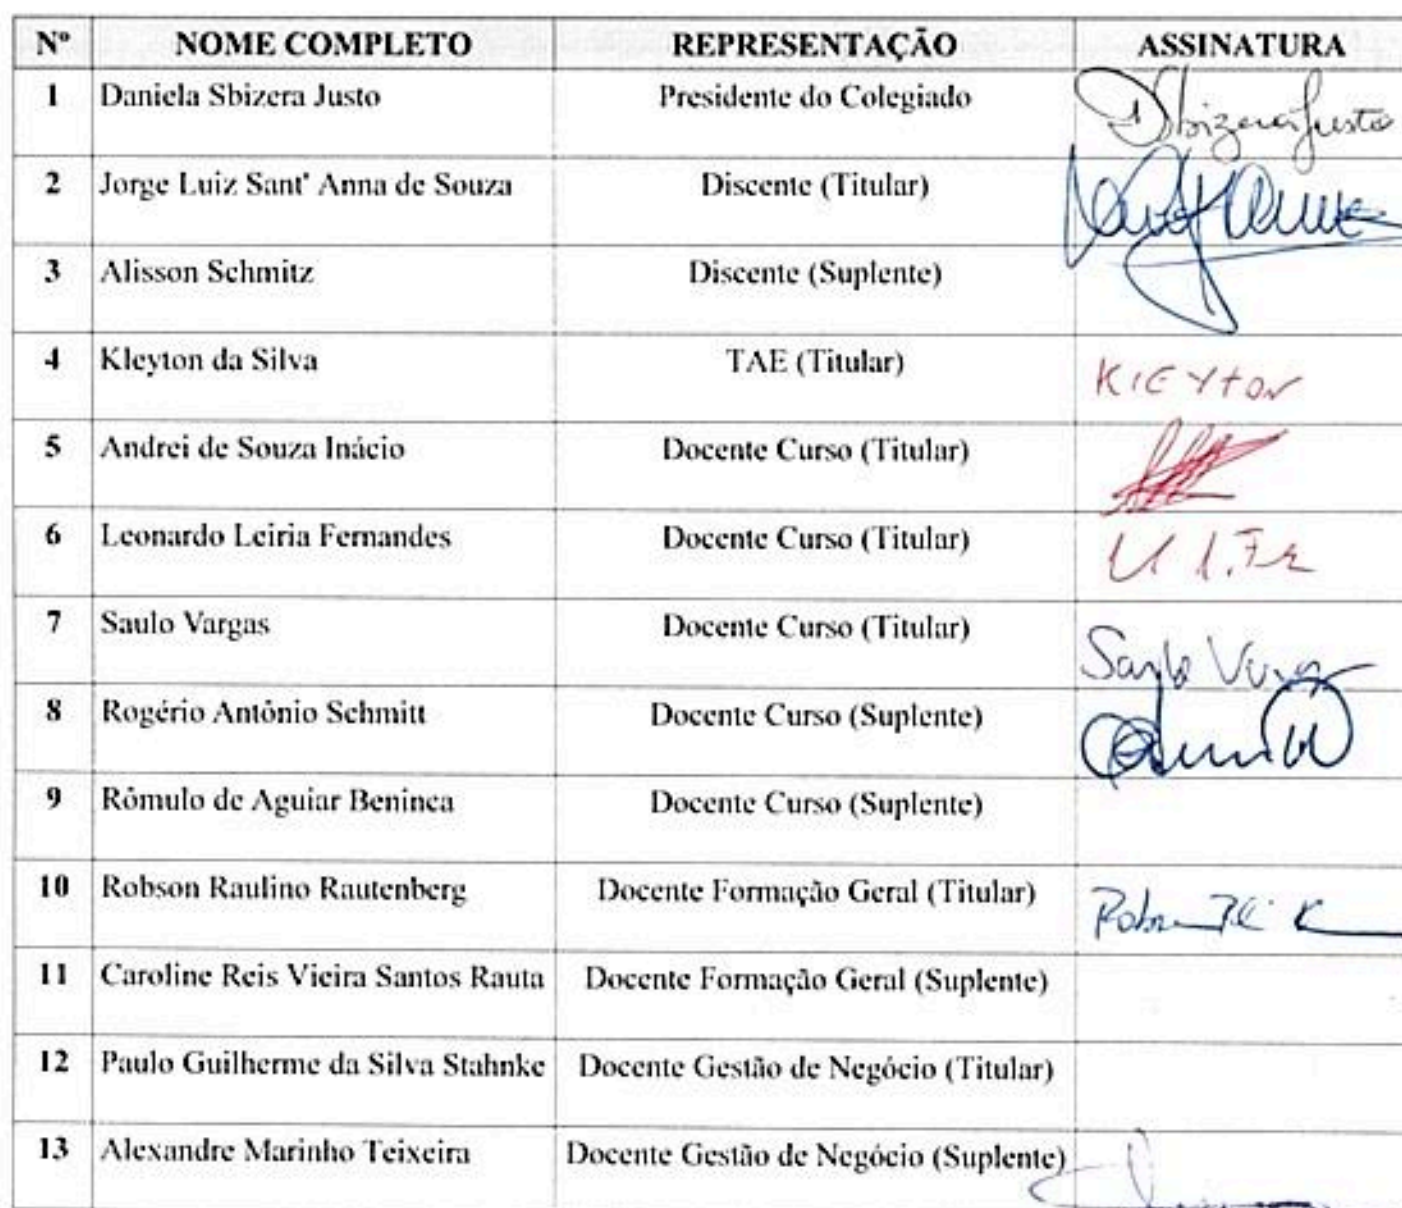 Nº NOME COMPLETO REPRESENTAÇÃO ASSINATURA
1 Daniela Sbizera Justo Presidente do Colegiado Sbizera Justo
2 Jorge Luiz Sant' Anna de Souza Discente (Titular)
3 Alisson Schmitz Discente (Suplente)
4 Kleyton da Silva TAE (Titular) KlEYtON
5 Andrei de Souza Inácio Docente Curso (Titular)
6 Leonardo Leiria Fernandes Docente Curso (Titular)
7 Saulo Vargas Docente Curso (Titular) Saulo
8 Rogério Antônio Schmitt Docente Curso (Suplente)
9 Rômulo de Aguiar Beninca Docente Curso (Suplente)
10 Robson Raulino Rautenberg Docente Formação Geral (Titular)
11 Caroline Reis Vieira Santos Rauta Docente Formação Geral (Suplente)
12 Paulo Guilherme da Silva Stahnke Docente Gestão de Negócio (Titular)
13 Alexandre Marinho Teixeira Docente Gestão de Negócio (Suplente)